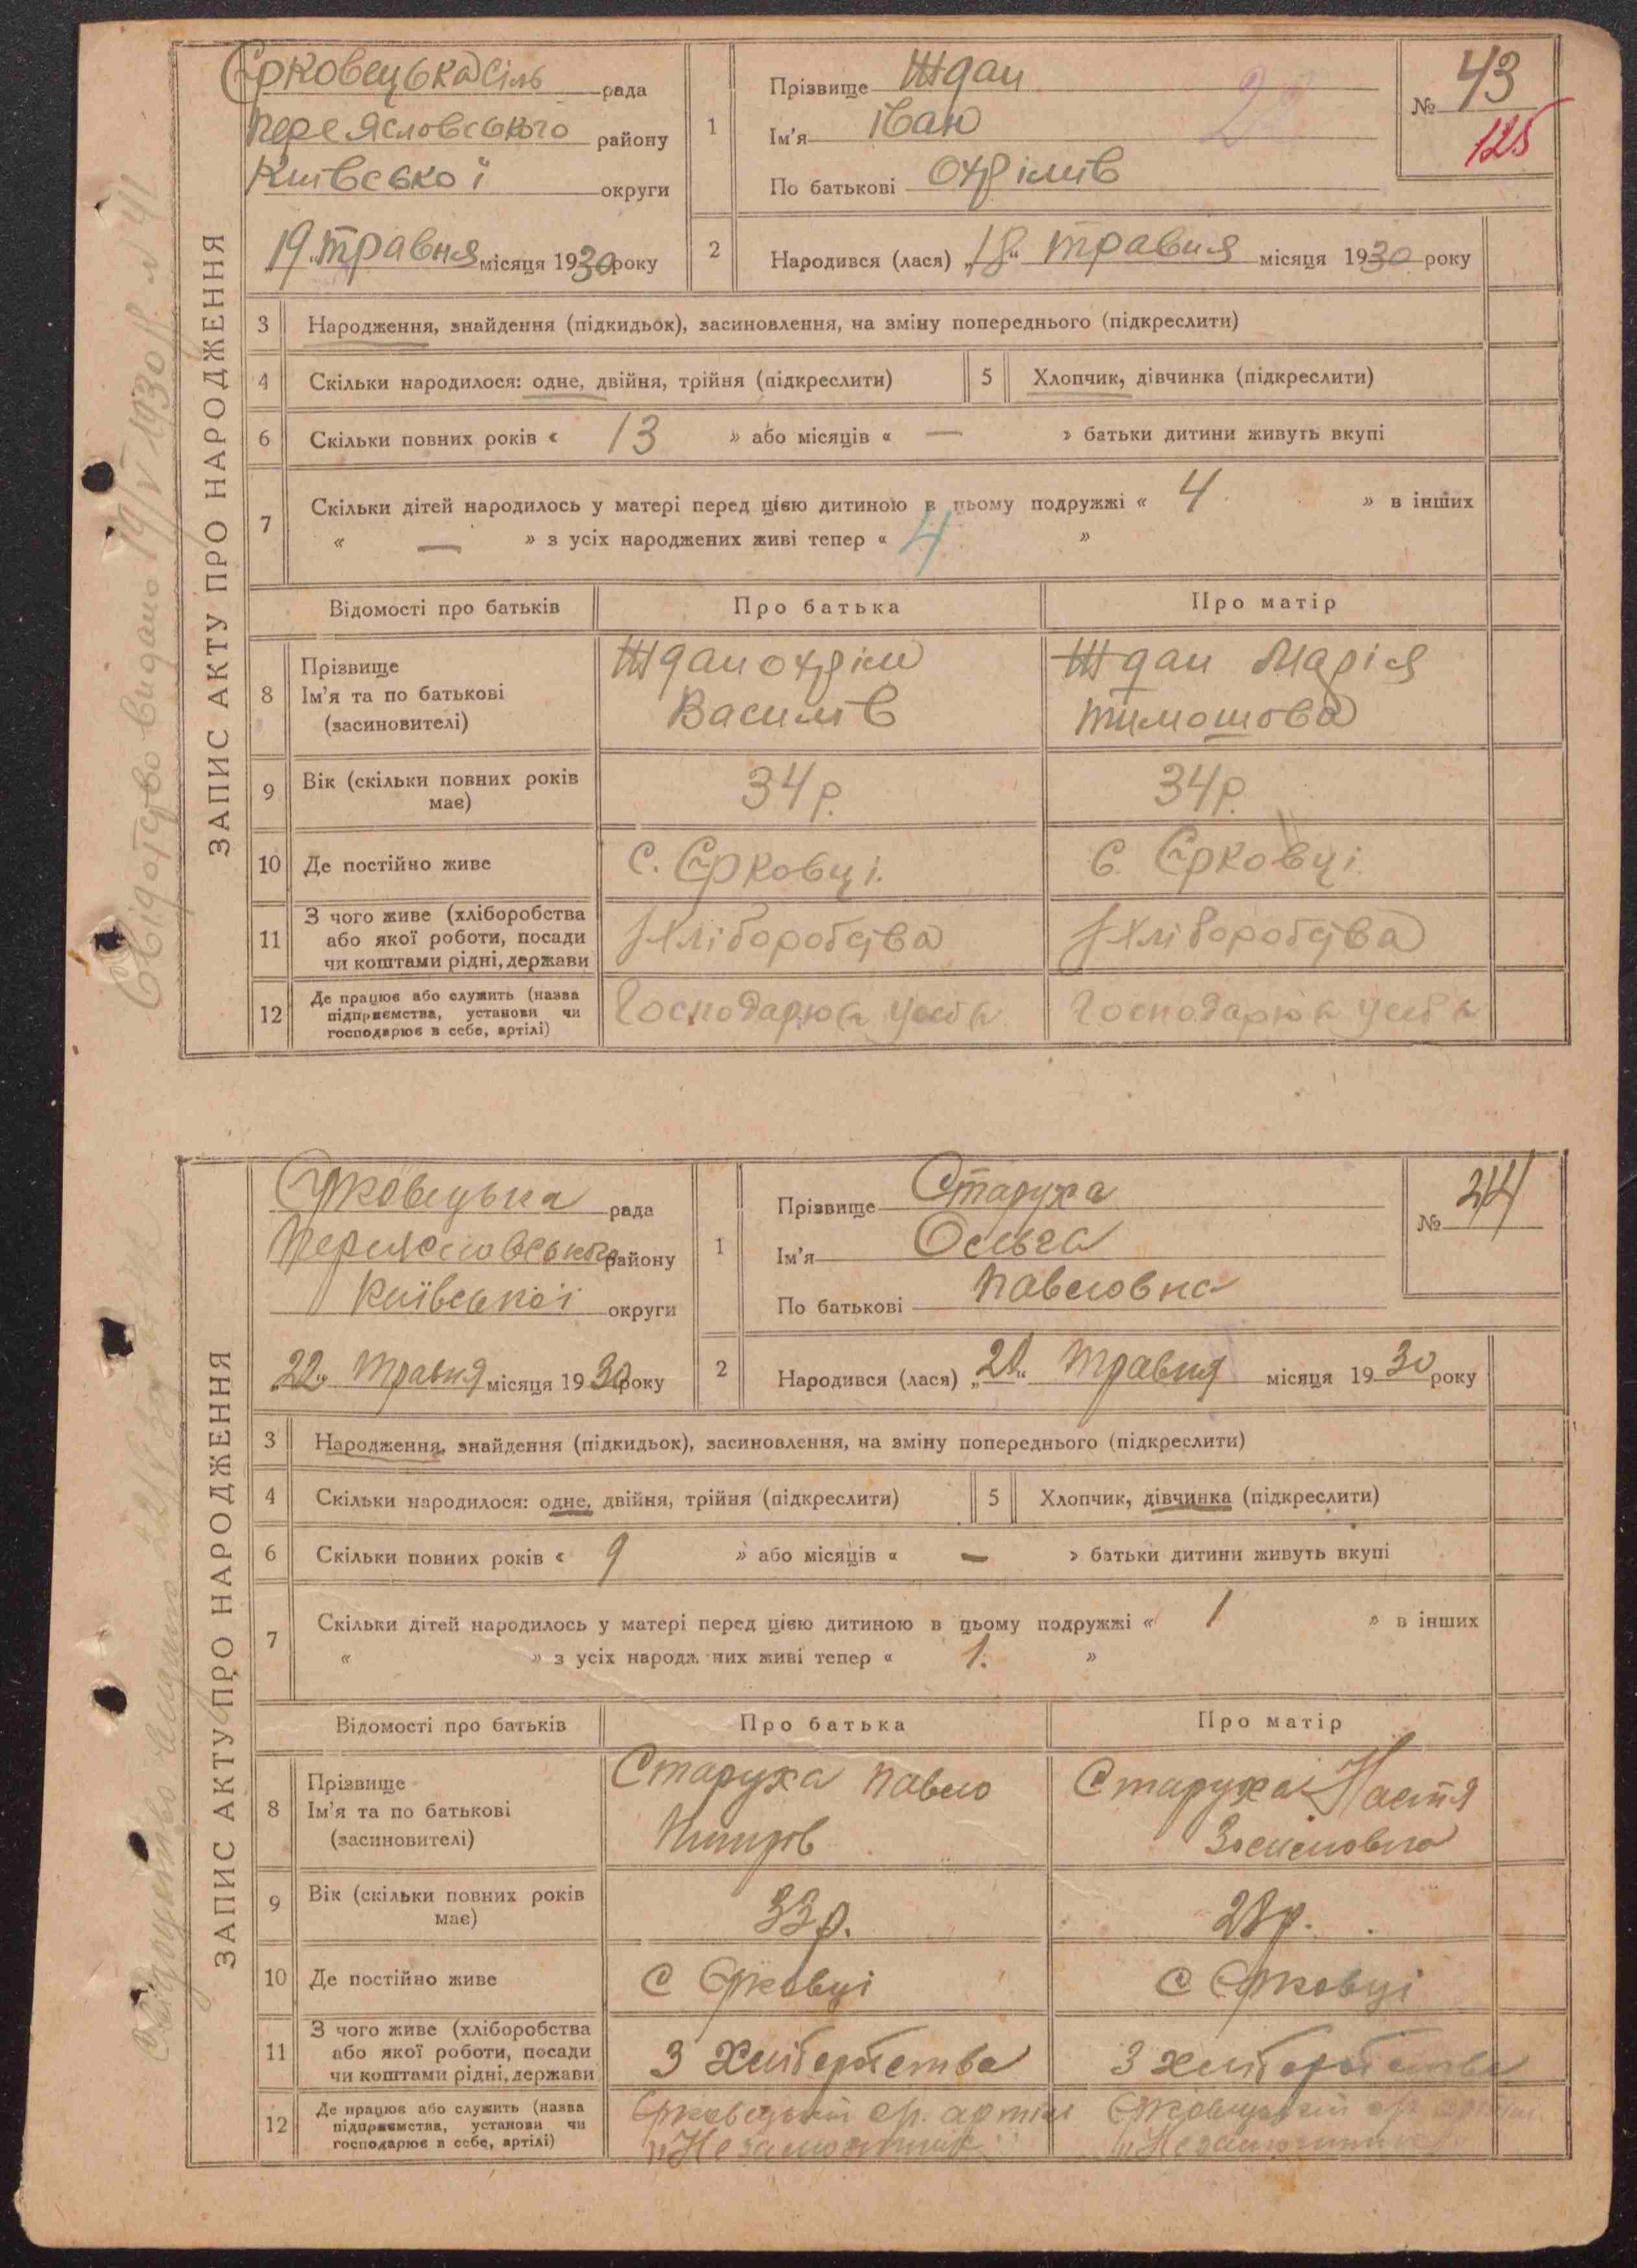 Свідоцтво видано 19/V 1930 р. № 41
ЗАПИС АКТУ ПРО НАРОДЖЕННЯ
Єрковецька сіль рада
Переясловського району
Київської округи
„19“ травня місяця 1930 року
1
Прізвище Ждан
Ім'я Іван
По батькові Охрімів
№ 43
125
2 Народився (лася) „18“ травня місяця 1930 року
3 Народження, знайдення (підкидьок), засиновлення, на зміну попереднього (підкреслити)
4 Скільки народилося: одне, двійня, трійня (підкреслити) 5 Хлопчик, дівчинка (підкреслити)
6 Скільки повних років « 13 » або місяців « — » батьки дитини живуть вкупі
7 Скільки дітей народилось у матері перед цією дитиною в цьому подружжі « 4 » в інших
« — » з усіх народжених живі тепер « 4 »
Відомості про батьків Про батька Про матір
8 Прізвище Ім'я та по батькові (засиновителі)
Ждан Охрім
Василів
Ждан Марія
Тимошова
9 Вік (скільки повних років має) 34 р. 34 р.
10 Де постійно живе с. Єрковці. с. Єрковці.
11 З чого живе (хліборобства
або якої роботи, посади
чи коштами рідні, держави
Хліборобства Хліборобства
12 Де працює або служить (назва
підприємства, установи чи
господарює в себе, артілі)
Господарює у себе Господарює у себе
Свідоцтво видано 22/V
ЗАПИС АКТУ ПРО НАРОДЖЕННЯ
Єрковецька рада
Переясловського району
Київської округи
„22“ травня місяця 1930 року
1
Прізвище Старуха
Ім'я Ольга
По батькові Павловна
№ 44
2 Народився (лася) „21“ травня місяця 1930 року
3 Народження, знайдення (підкидьок), засиновлення, на зміну попереднього (підкреслити)
4 Скільки народилося: одне, двійня, трійня (підкреслити) 5 Хлопчик, дівчинка (підкреслити)
6 Скільки повних років « 9 » або місяців « — » батьки дитини живуть вкупі
7 Скільки дітей народилось у матері перед цією дитиною в цьому подружжі « 1 » в інших
« » з усіх народж них живі тепер « 1. »
Відомості про батьків Про батька Про матір
8 Прізвище Ім'я та по батькові (засиновителі)
Старуха Павло
Старуха Настя
9 Вік (скільки повних років має) 33 р. 28 р.
10 Де постійно живе с Єрковці с Єрковці
11 З чого живе (хліборобства
або якої роботи, посади
чи коштами рідні, держави
З хліборобства З хліборобства
12 Де працює або служить (назва
підприємства, установи чи
господарює в себе, артілі)
Єрковецькій ср. артілі
„Незаможник“
Єрковецькій ср. артілі
„Незаможник“